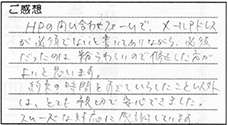 ご感想
HPの問い合わせフォームで、メールアドレス
が必須でないと書いてありながら、必須
だったのは紛らわしいので修正した方が
よいと思います。
約束の時間をすぎていらしたこと以外
は、とても親切で安心できました。
スムーズな対応に感謝しています